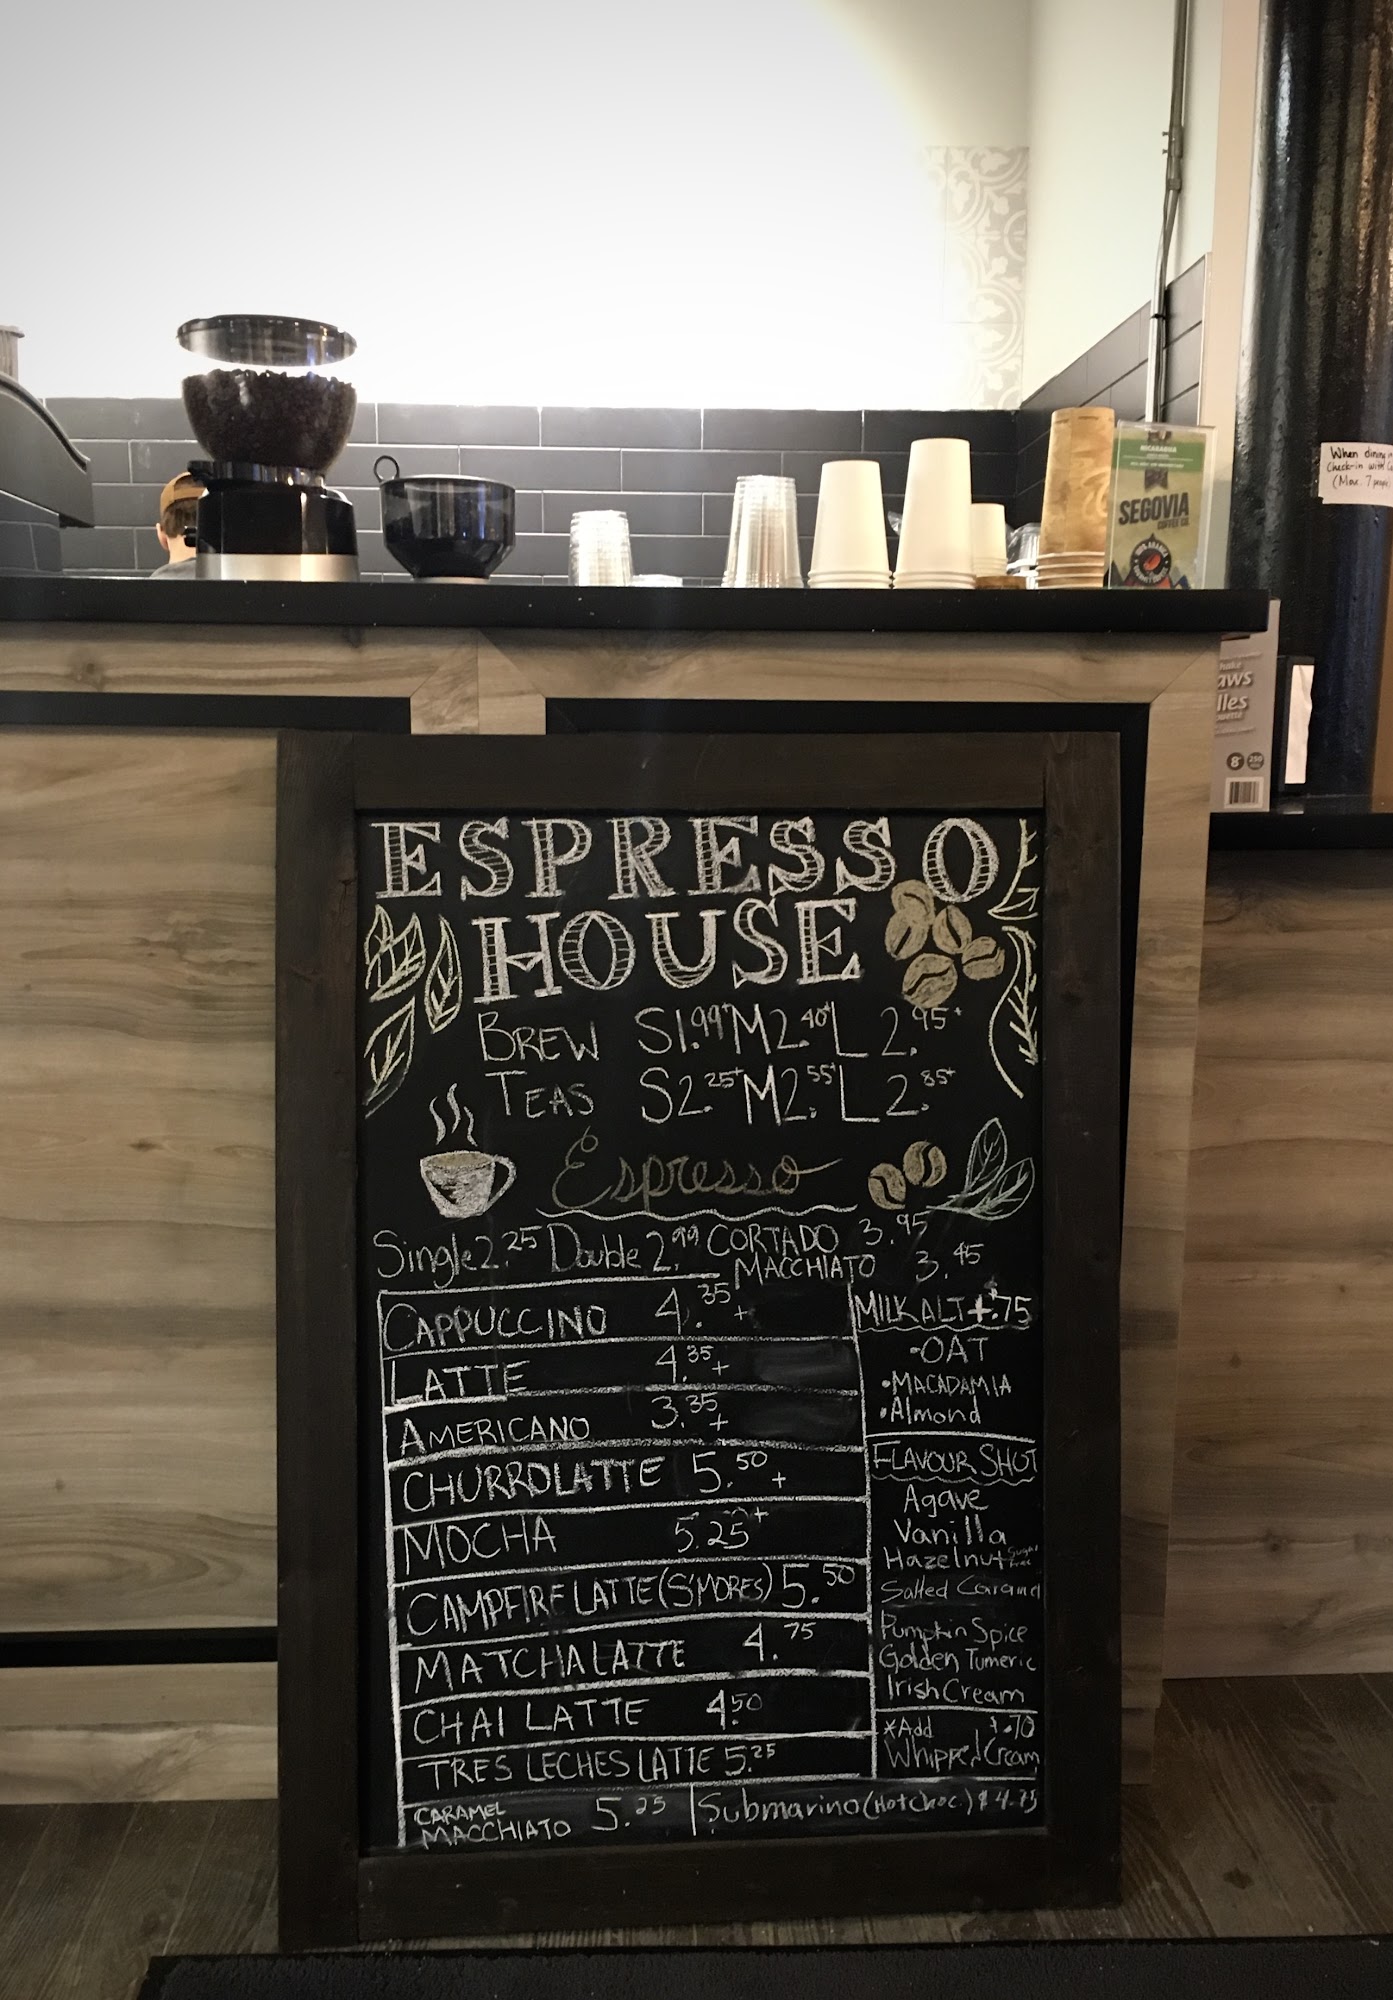 NICARAGUA
SEGOVIA
COFFEE CO.
When dining in
Check-in with
(Max. 7 people
aws
lles
8"
250
ESPRESSO
HOUSE
BREW S1.99+ M2.40+ L 2.95+
TEAS S2.25+ M2.55+ L 2.85+
Espresso
Single 2.25 Double 2.99 CORTADO 3.95
MACCHIATO 3.45
CAPPUCCINO 4.35+
LATTE 4.35+
AMERICANO 3.35+
CHURROLATTE 5.50+
MOCHA 5.25+
CAMPFIRE LATTE (S'MORES) 5.50
MATCHA LATTE 4.75
CHAI LATTE 4.50
TRES LECHES LATTE 5.25
CARAMEL
MACCHIATO 5.25
MILK ALT +$.75
•OAT
•MACADAMIA
•Almond
FLAVOUR SHOT
Agave
Vanilla
Hazelnut Sugar free
Salted Caramel
Pumpkin Spice
Golden Tumeric
Irish Cream
*Add $.70
Whipped Cream
Submarino (Hot Choc.) $4.75